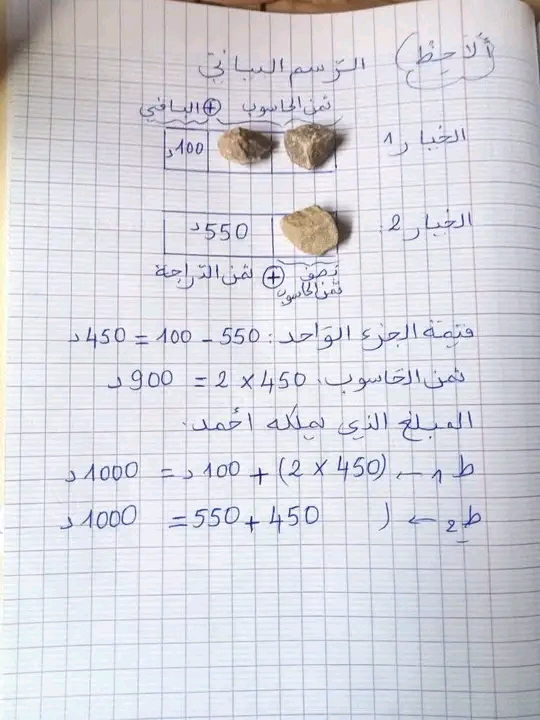 ألاحظ
الرسم البياني
ثمن الحاسوب + الباقي
الخيار 1
100د
الخيار 2:
550د
نصف ثمن الحاسوب + ثمن الدراجة
قيمة الجزء الواحد: 550 - 100 = 450د
ثمن الحاسوب: 450 × 2 = 900د
المبلغ الذي يملكه أحمد:
ط1 ← (450 × 2) + 100د = 1000د
ط2 ← ) 450 + 550 = 1000د